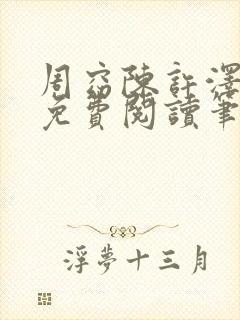 周窈陈許澤
免費閱讀筆
浮夢十三月